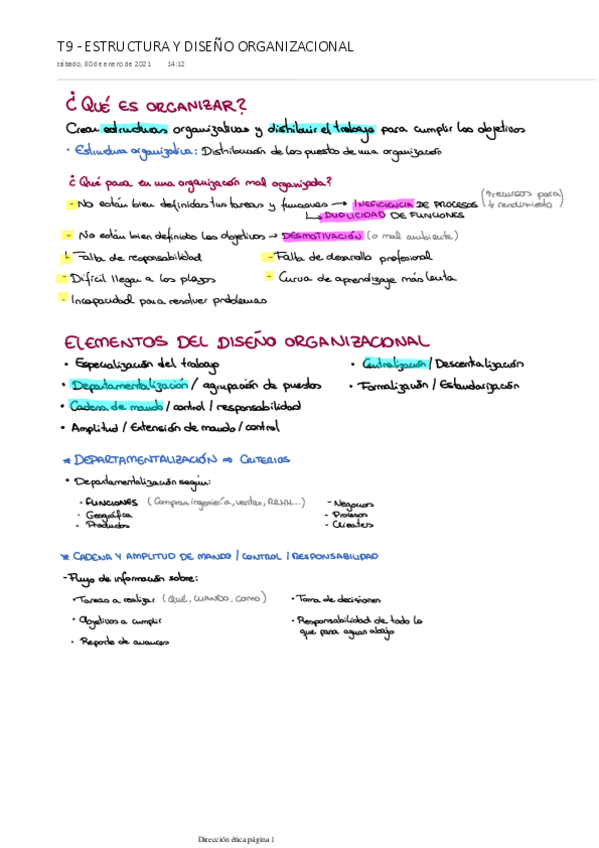 T9 - ESTRUCTURA Y DISEÑO ORGANIZACIONAL
sábado, 30 de enero de 2021 14:12
¿QUÉ ES ORGANIZAR?
Crear estructuras organizativas y distribuir el trabajo para cumplir los objetivos
• Estructura organizativa: Distribución de los puestos de una organización
¿Qué pasa en una organización mal organizada?
- No están bien definidas tus tareas y funciones → INEFICIENCIA DE PROCESOS (↑recursos para ↓rendimiento)
↳ DUPLICIDAD DE FUNCIONES
- No están bien definidos los objetivos → DESMOTIVACIÓN (o mal ambiente)
↳ Falta de responsabilidad
- Falta de desarrollo profesional
- Difícil llegar a los plazos
- Curva de aprendizaje más lenta
- Incapacidad para resolver problemas
ELEMENTOS DEL DISEÑO ORGANIZACIONAL
• Especialización del trabajo
• Centralización / Descentralización
• Departamentalización / agrupación de puestos
• Formalización / Estandarización
• Cadena de mando / control / responsabilidad
• Amplitud / Extensión de mando / control
* DEPARTAMENTALIZACIÓN ⇒ CRITERIOS
• Departamentalización según:
- FUNCIONES (Compras, ingeniería, ventas, RRHH...)
- Negocios
- Geográfica
- Procesos
- Productos
- Clientes
* CADENA Y AMPLITUD DE MANDO / CONTROL / RESPONSABILIDAD
- Flujo de información sobre:
• Tareas a realizar (QUÉ, CUANDO, COMO)
• Toma de decisiones
• Objetivos a cumplir
• Responsabilidad de todo lo
que para aguas abajo
• Reporte de avances
Dirección ética página 1